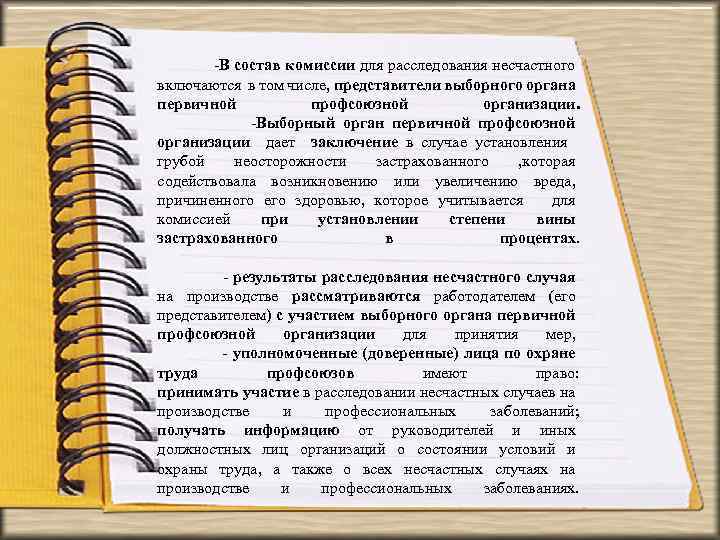 -В состав комиссии для расследования несчастного
включаются в том числе, представители выборного органа
первичной профсоюзной организации.
-Выборный орган первичной профсоюзной
организации дает заключение в случае установления
грубой неосторожности застрахованного , которая
содействовала возникновению или увеличению вреда,
причиненного его здоровью, которое учитывается для
комиссией при установлении степени вины
застрахованного в процентах.
- результаты расследования несчастного случая
на производстве рассматриваются работодателем (его
представителем) с участием выборного органа первичной
профсоюзной организации для принятия мер,
- уполномоченные (доверенные) лица по охране
труда профсоюзов имеют право:
принимать участие в расследовании несчастных случаев на
производстве и профессиональных заболеваний;
получать информацию от руководителей и иных
должностных лиц организаций о состоянии условий и
охраны труда, а также о всех несчастных случаях на
производстве и профессиональных заболеваниях.